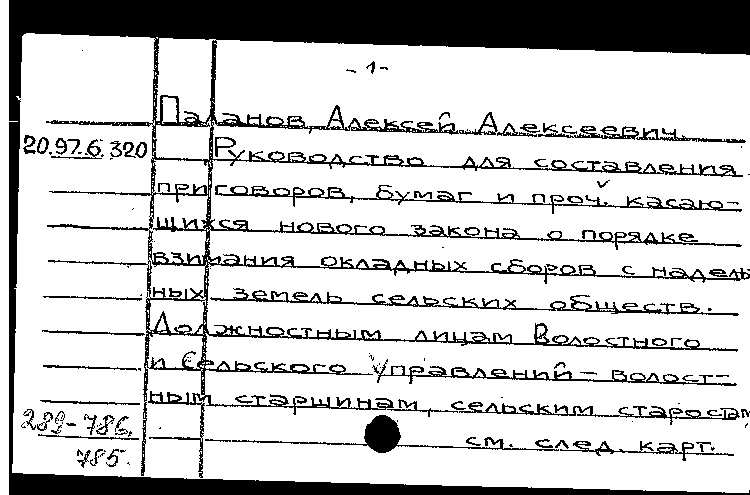 - 1 -
Паланов, Алексей Алексеевич.
20.97.6.320 Руководство для составления
приговоров, бумаг и проч. касаю-
щихся нового закона о порядке
взимания окладных сборов с надель
ных земель сельских обществ.
Должностным лицам Волостного
и Сельского Управлений - волост-
ным старшинам, сельским старостам,
289-786.
см. след. карт.
785.